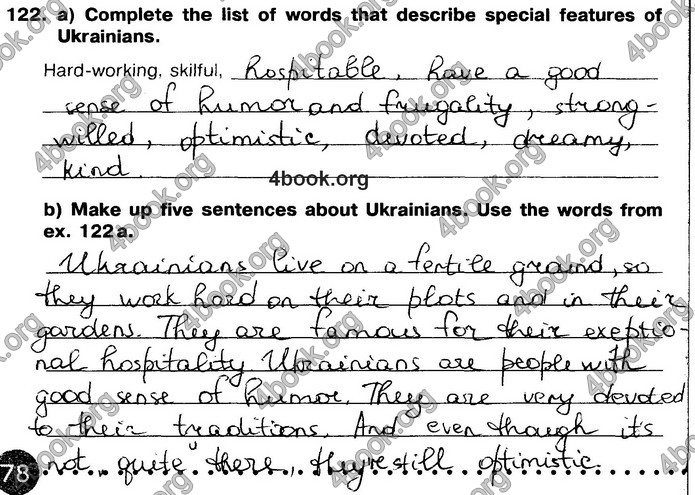 122. a) Complete the list of words that describe special features of
Ukrainians.
Hard-working, skilful, hospitable, have a good
sense of humor and frugality, strong-
willed, optimistic, devoted, dreamy,
kind.
4book.org
b) Make up five sentences about Ukrainians. Use the words from
ex. 122a.
Ukrainians live on a fertile ground, so
they work hard on their plots and in their
gardens. They are famous for their exeptio-
nal hospitality. Ukrainians are people with
good sense of humor. They are very devoted
to their traditions. And even though it's
not "quite there", they're still optimistic.
78